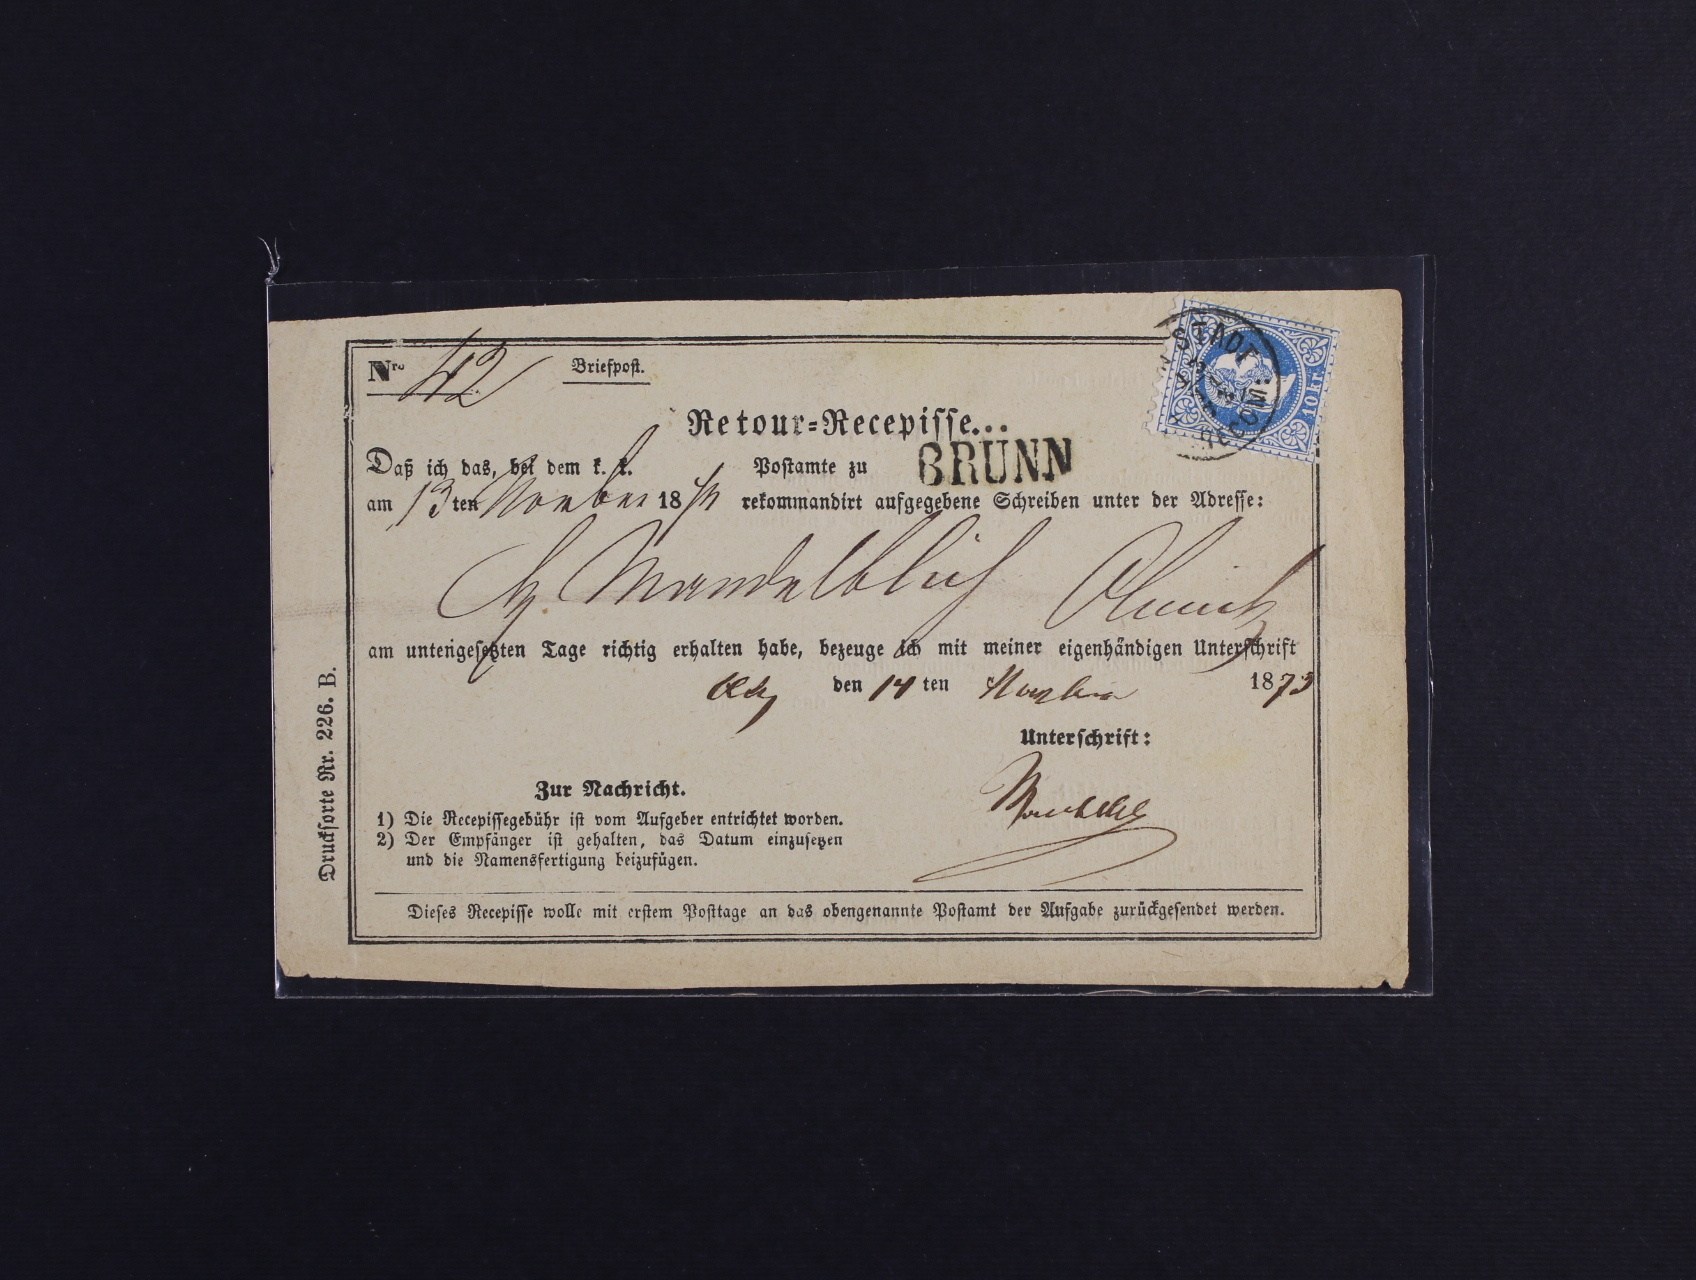 Nro 42 Briefpost.
Retour-Recepisse...
Daß ich das, bei dem k. k. Postamte zu BRÜNN
am 13ten November 18 rekommandirt aufgegebene Schreiben unter der Adresse:
Mandelblüh Olmütz
am untengesetzten Tage richtig erhalten habe, bezeuge ich mit meiner eigenhändigen Unterschrift
den 14ten November 1873
Unterschrift:
Zur Nachricht.
1) Die Recepissegebühr ist vom Aufgeber entrichtet worden.
2) Der Empfänger ist gehalten, das Datum einzusetzen
und die Namensfertigung beizufügen.
Dieses Recepisse wolle mit erstem Posttage an das obengenannte Postamt der Aufgabe zurückgesendet werden.
Drucksorte Nr. 226. B.
STADT
RECOM:
10 kr.